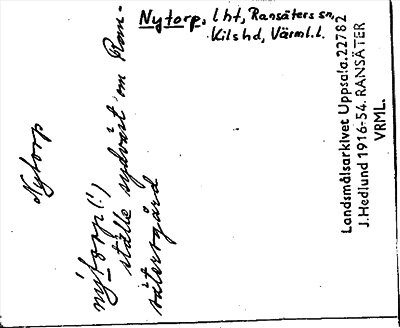 Nytorp, lht, Ransäters sn,
Kils hd, Värml. l.
Nytorp
nýtorp (!)
ställe sydväst om Ran-
sätersgård
Landsmålsarkivet Uppsala. 22782
J. Hedlund 1916-54. RANSÄTER
VRML.